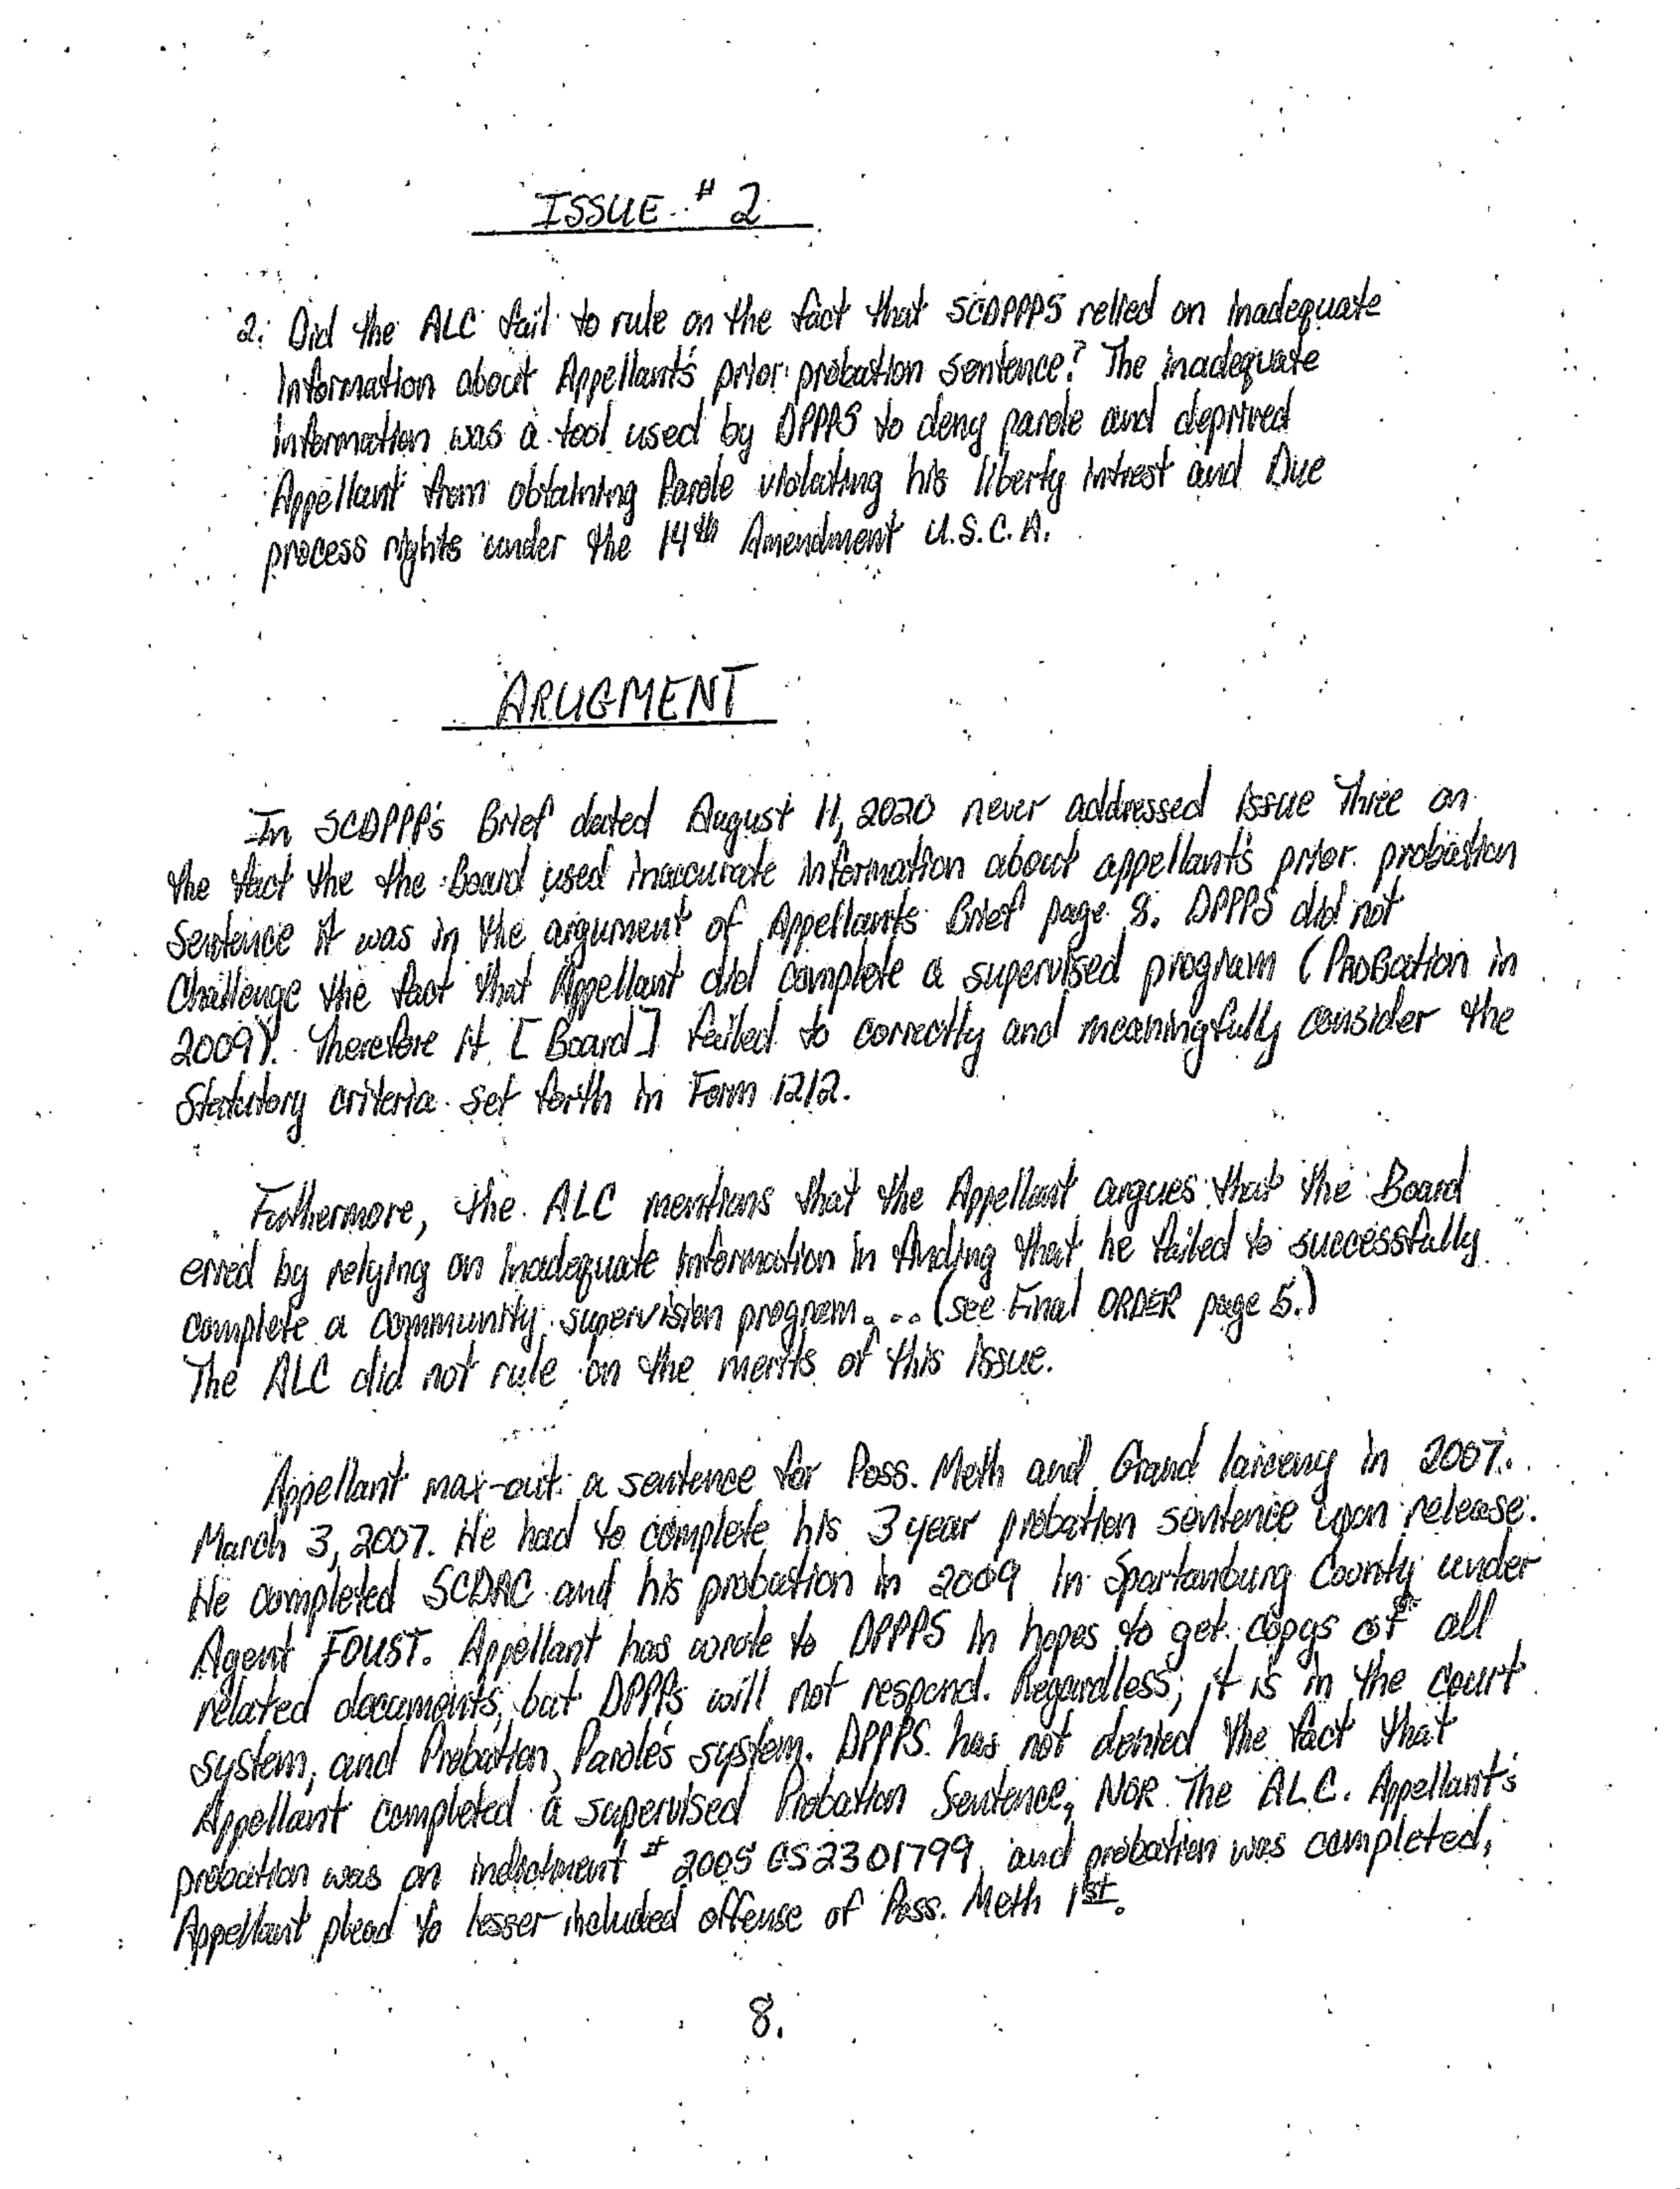 ISSUE # 2
2. Did the ALC fail to rule on the fact that SCDPPPS relied on Inadequate
Information about Appellant's prior probation sentence? The inadequate
information was a tool used by DPPPS to deny parole and deprived
Appellant from obtaining Parole violating his liberty intrest and Due
process rights under the 14th Amendment U.S.C.A.
ARUGMENT
In SCDPPP's Brief dated August 11, 2020 never addressed issue Three on
the fact the the Board used inaccurate information about appellant's prior probation
Sentence it was in the argument of Appellants Brief page 8. DPPPS did not
Challenge the fact that Appellant did complete a supervised program (Probation in
2009). Therefore it [Board] failed to correctly and meaningfully consider the
Statutory criteria set forth in Form 1212.
Futhermore, the ALC mentions that the Appellant argues that the Board
erred by relying on Inadequate information in finding that he failed to successfully
complete a community supervision program... (see Final ORDER page 5.)
The ALC did not rule on the merits of this issue.
Appellant max-out a sentence for Poss. Meth and Grand larceny in 2007.
March 3, 2007. He had to complete his 3 year probation sentence upon release.
He completed SCDAC and his probation in 2009 in Spartanburg County under
Agent FOUST. Appellant has wrote to DPPPS in hopes to get copys of all
related documents, but DPPPS will not respond. Regardless, it is in the court
system, and Probation, Parole's system. DPPPS has not denied the fact that
Appellant completed a supervised Probation Sentence, NOR The ALC. Appellant's
probation was on indictment # 2005 GS2301799, and probation was completed,
Appellant plead to lesser included offense of Poss. Meth 1st.
8.